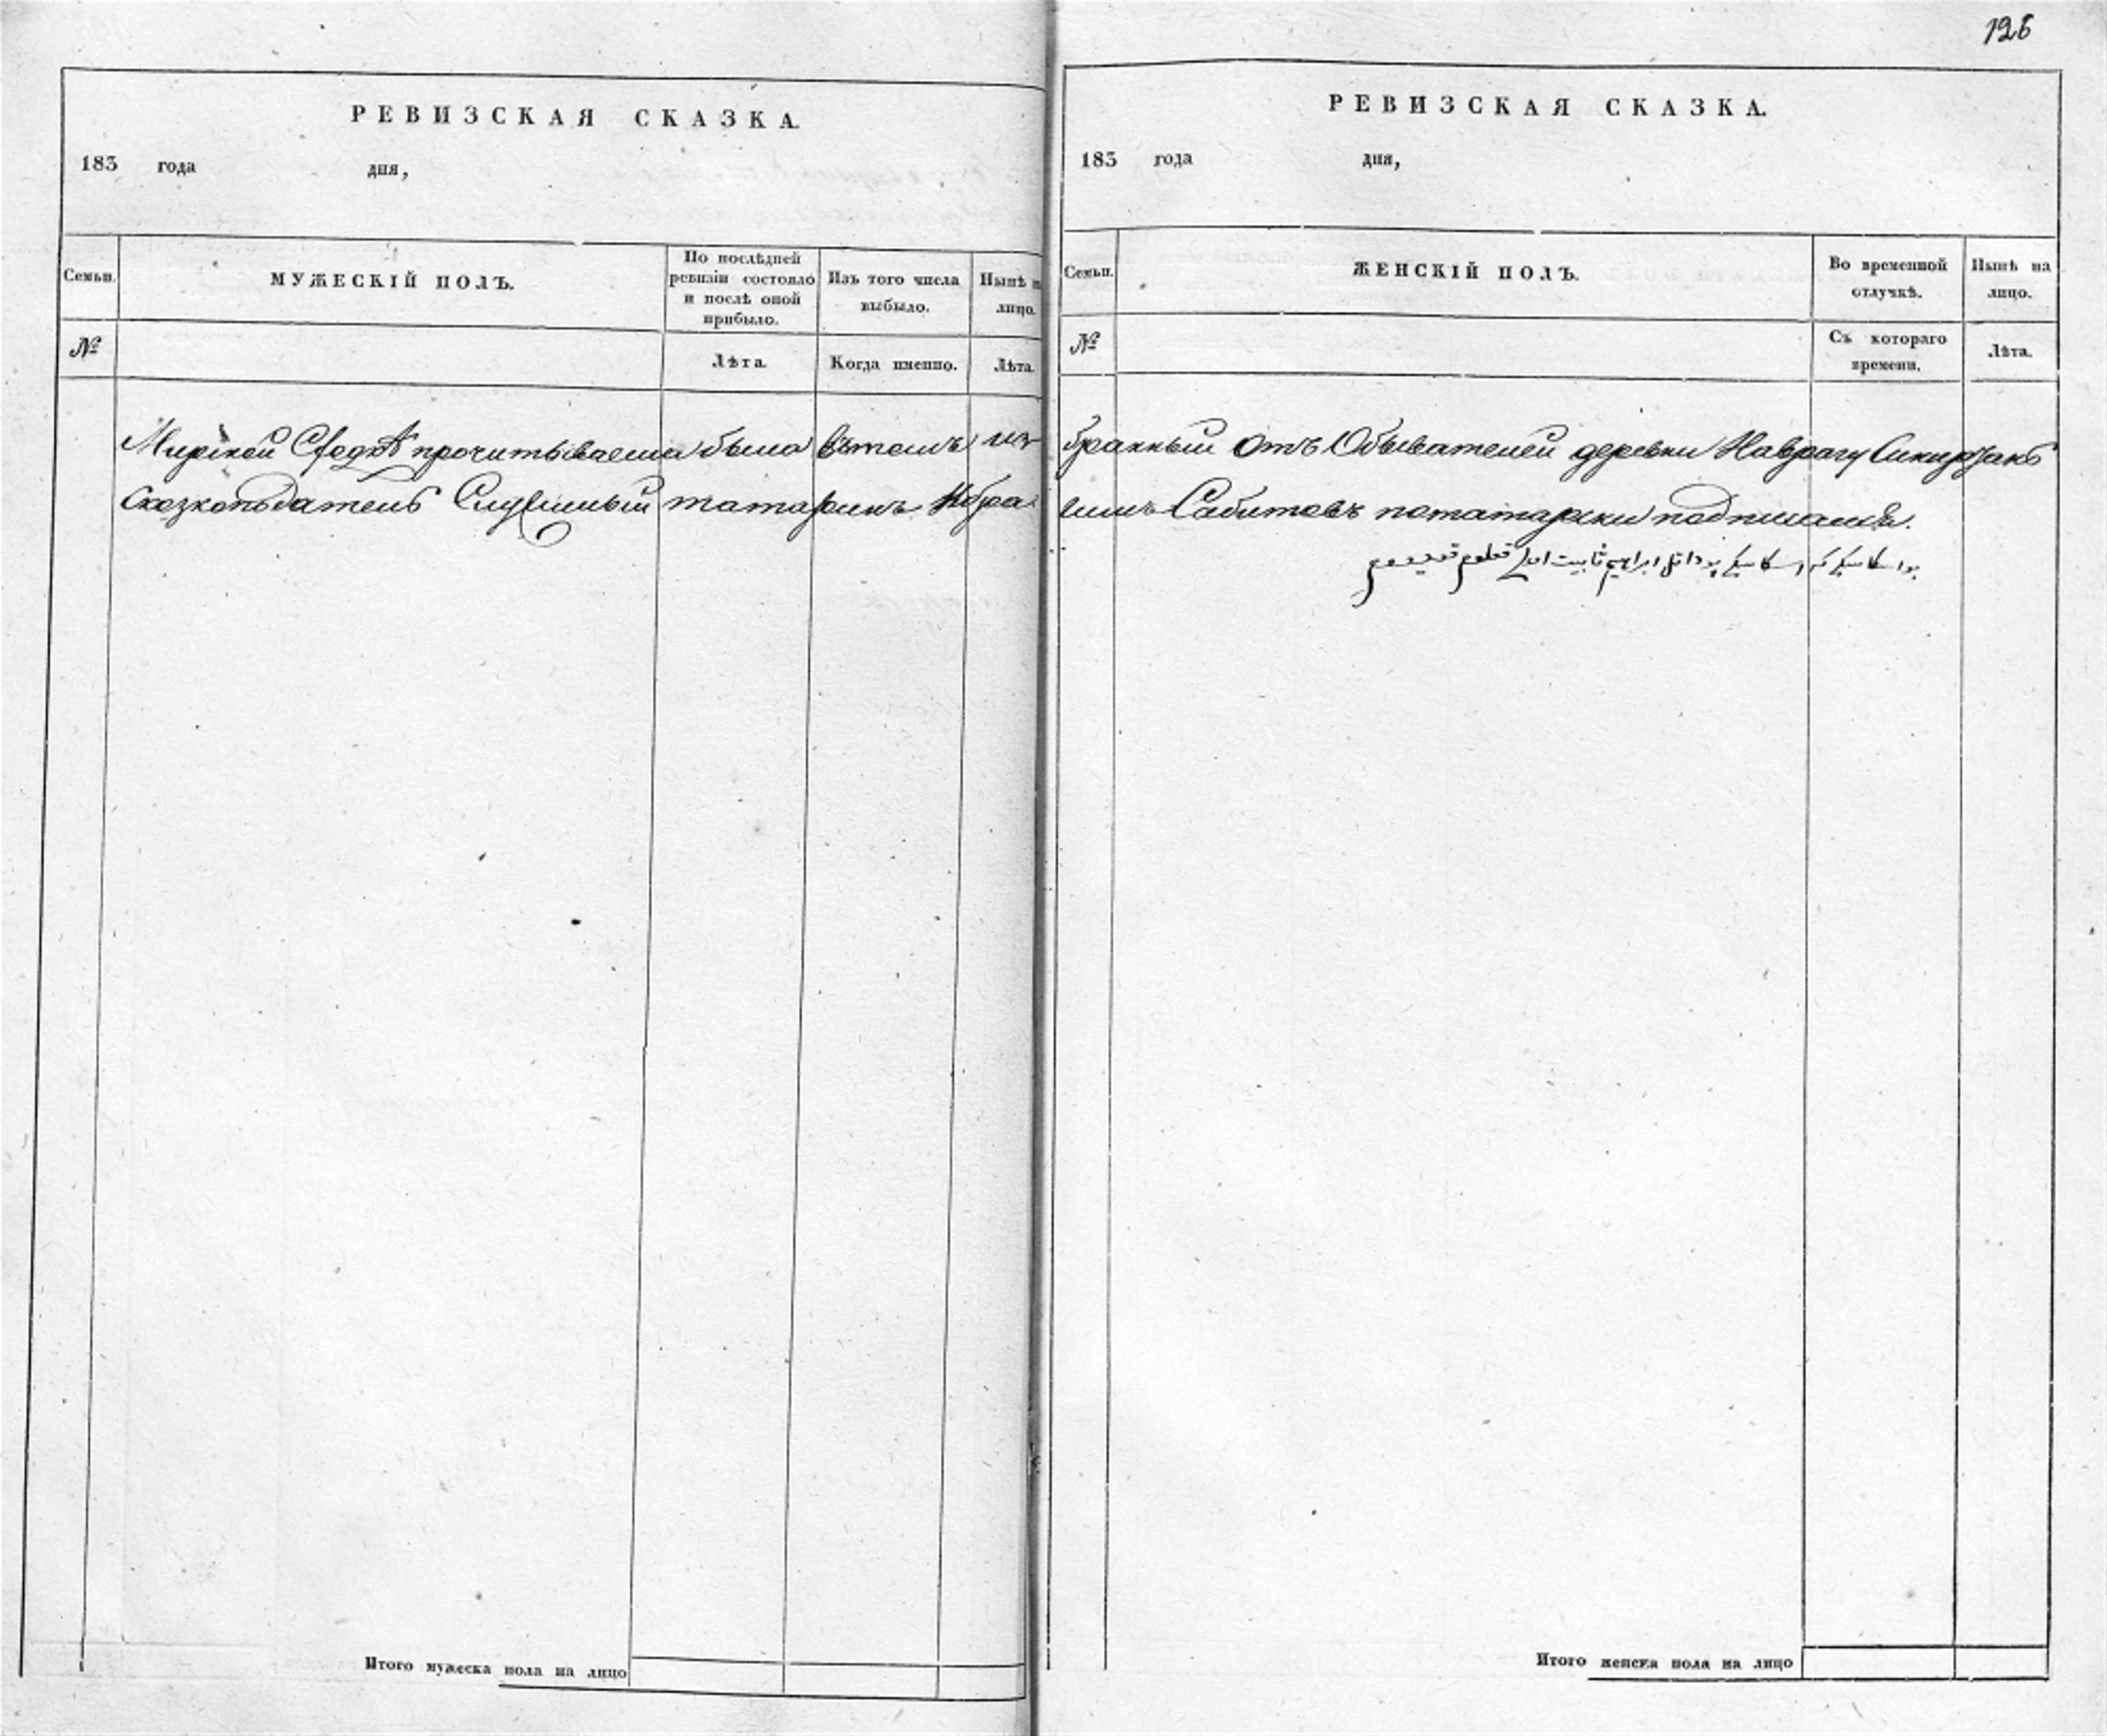 126
РЕВИЗСКАЯ СКАЗКА.
183 года дня,
Семьи.
МУЖЕСКІЙ ПОЛЪ.
По послѣдней ревизіи состояло и послѣ оной прибыло.
Изъ того числа выбыло.
Нынѣ на лицо.
№
Лѣта.
Когда именно.
Лѣта.
прочитываема была вътомъ из
сказкоподатель Служилый татаринъ Ибра
Итого мужеска пола на лицо
РЕВИЗСКАЯ СКАЗКА.
183 года дня,
Семьи.
ЖЕНСКІЙ ПОЛЪ.
Во временной отлучкѣ.
Нынѣ на лицо.
№
Съ котораго времени.
Лѣта.
бранный отъ Обывателей деревни
гимъ Сабитовъ потатарски подписался.
ابراهيم ثابيت اوغلى
Итого женска пола на лицо